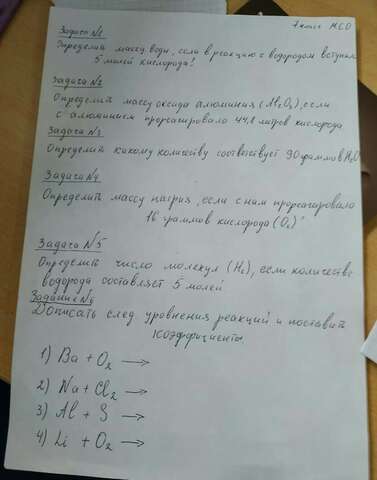 7 класс М.С.О
Задача №1
Определить массу воды, если в реакцию с водородом вступили
5 молей кислорода!
Задача №2
Определить массу оксида алюминия (Al₂O₃), если
с алюминием прореагировало 44,8 литров кислорода
Задача №3
Определить какому количеству соответствует 90 граммов H₂O
Задача №4
Определить массу натрия, если с ним прореагировало
16 граммов кислорода (O₂)
Задача №5
Определить число молекул (H₂), если количество
водорода составляет 5 молей
Задание №6
Дописать след уравнения реакций и поставить
коэффициенты
1) Ba + O₂ →
2) Na + Cl₂ →
3) Al + S →
4) Li + O₂ →